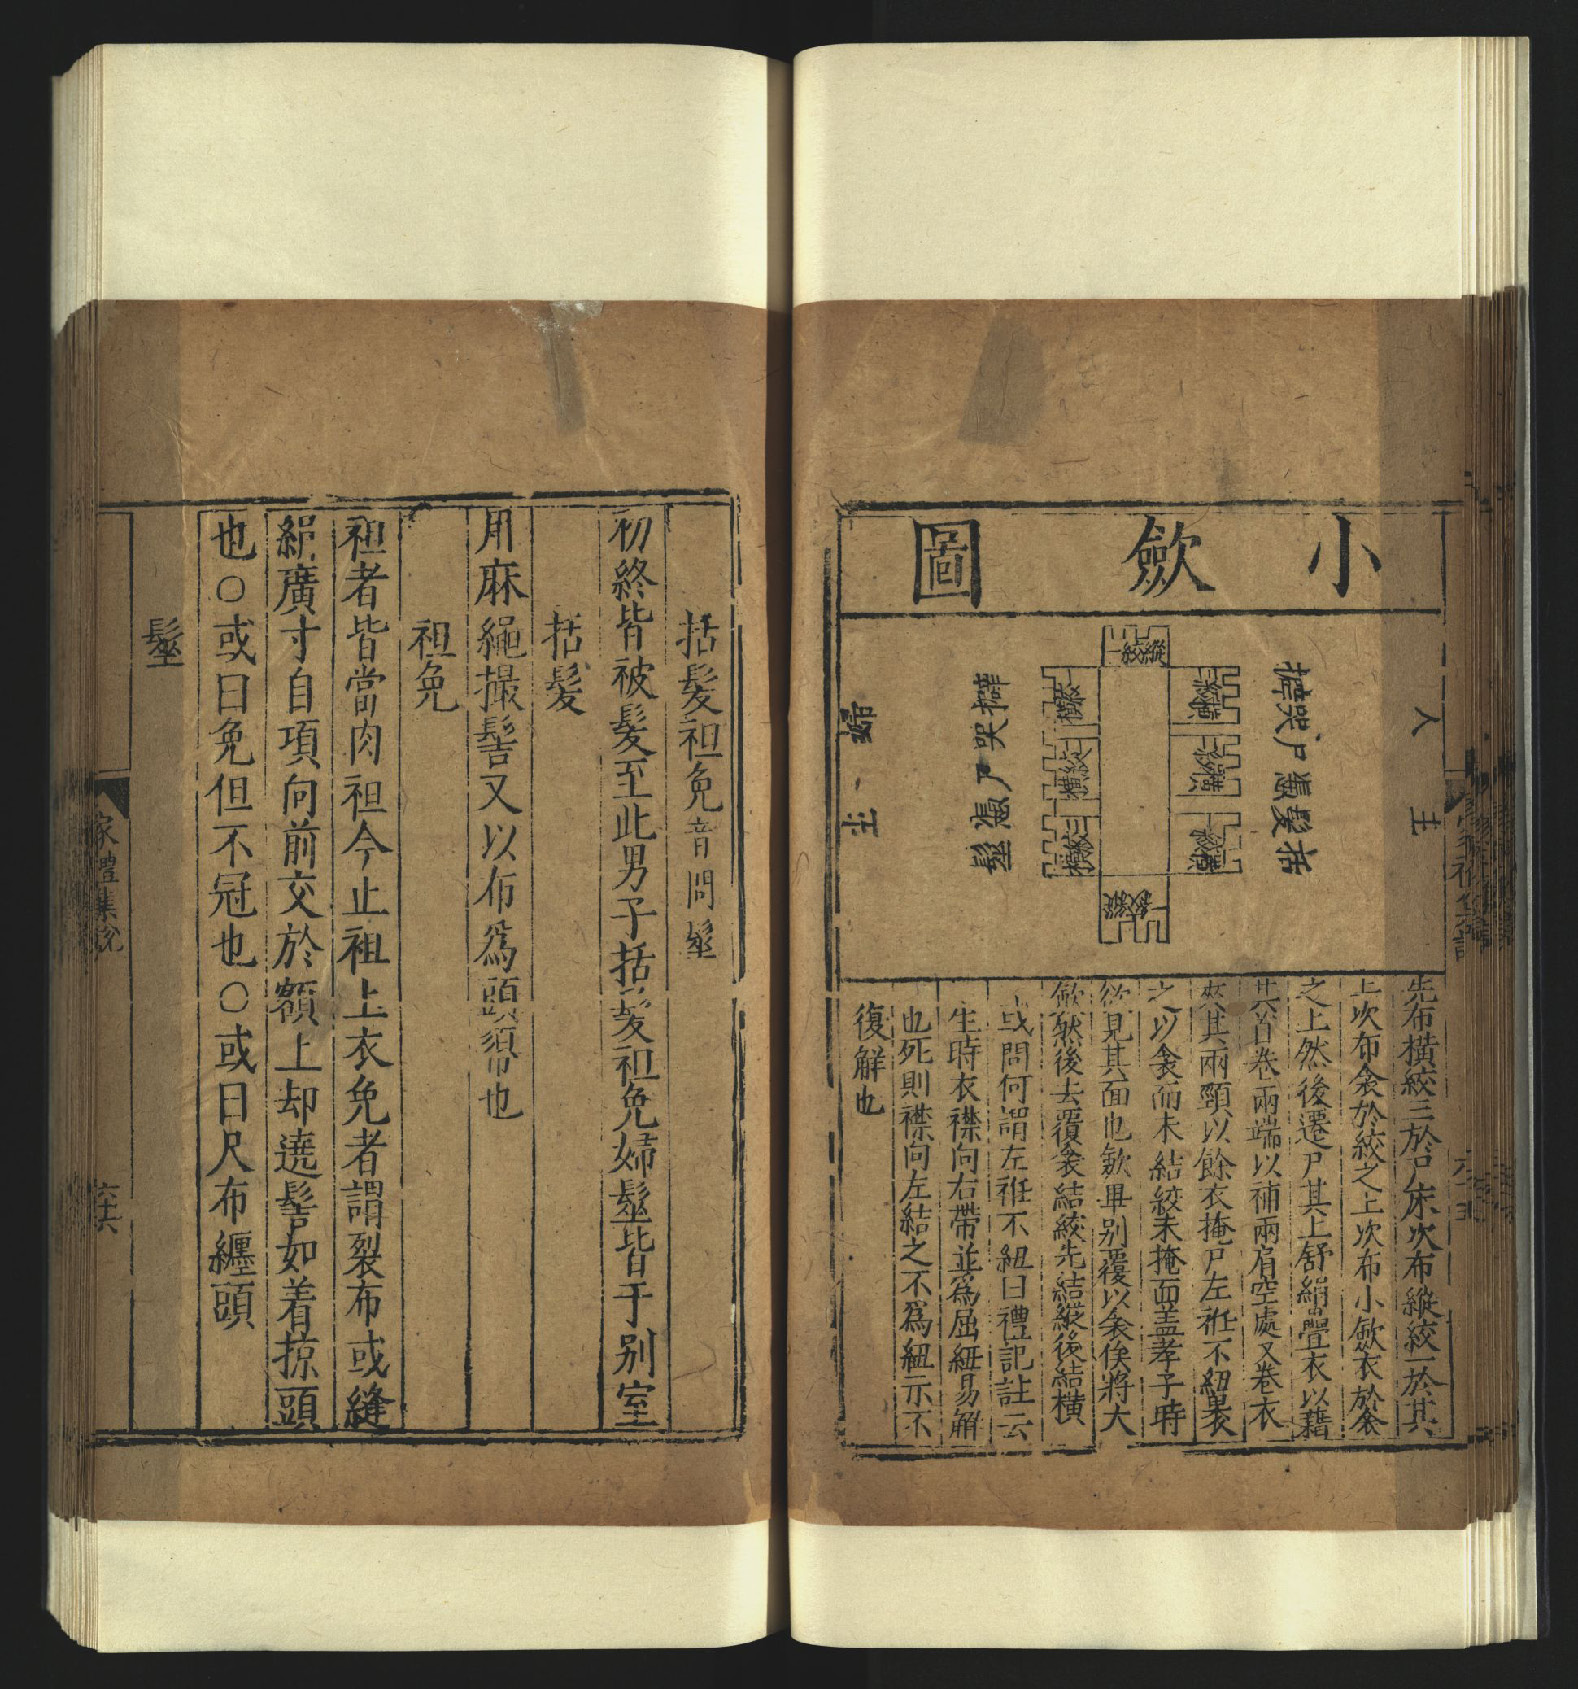 小歛圖
主人
括髮憑尸哭擗
縱絞
橫絞
橫絞
橫絞
橫絞
橫絞
橫絞
縱絞
髽憑尸哭擗
主婦
先布橫絞三於尸床次布縱絞一於其
上次布衾於絞之上次布小歛衣於衾
之上然後遷尸其上舒絹疊衣以藉
其首卷兩端以補兩肩空處又卷衣
夾其兩頸以餘衣掩尸左衽不紐裹
之以衾而未結絞未掩面盖孝子時
欲見其面也歛畢别覆以衾俟將大
歛然後去覆衾結絞先結縱後結橫
或問何謂左衽不紐曰禮記註云
生時衣襟向右帶並為屈紐易解
也死則襟向左結之不爲紐示不
復解也
括髮袒免音問髽
初終皆被髮至此男子括髮袒免婦髽皆于别室
括髮
用麻繩撮髻又以布爲頭𢄼也
袒免
袒者皆當肉袒今止袒上衣免者謂裂布或縫
絹廣寸自項向前交於額上却遶髻如着掠頭
也○或曰免但不冠也○或曰尺布纏頭
髽
家禮集說